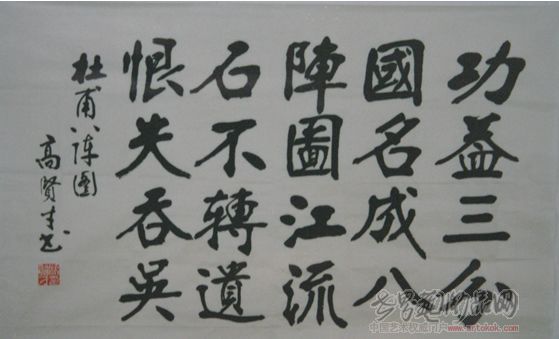 功盖三分
國名成八
陣圖江流
石不轉遺
恨失吞吳
杜甫八阵图
高賢才书
中国艺术收藏门户 www.artokok.com